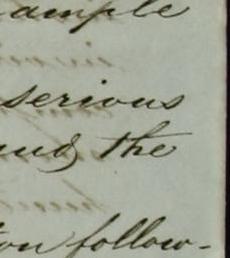 ample
serious
and the
on follow-